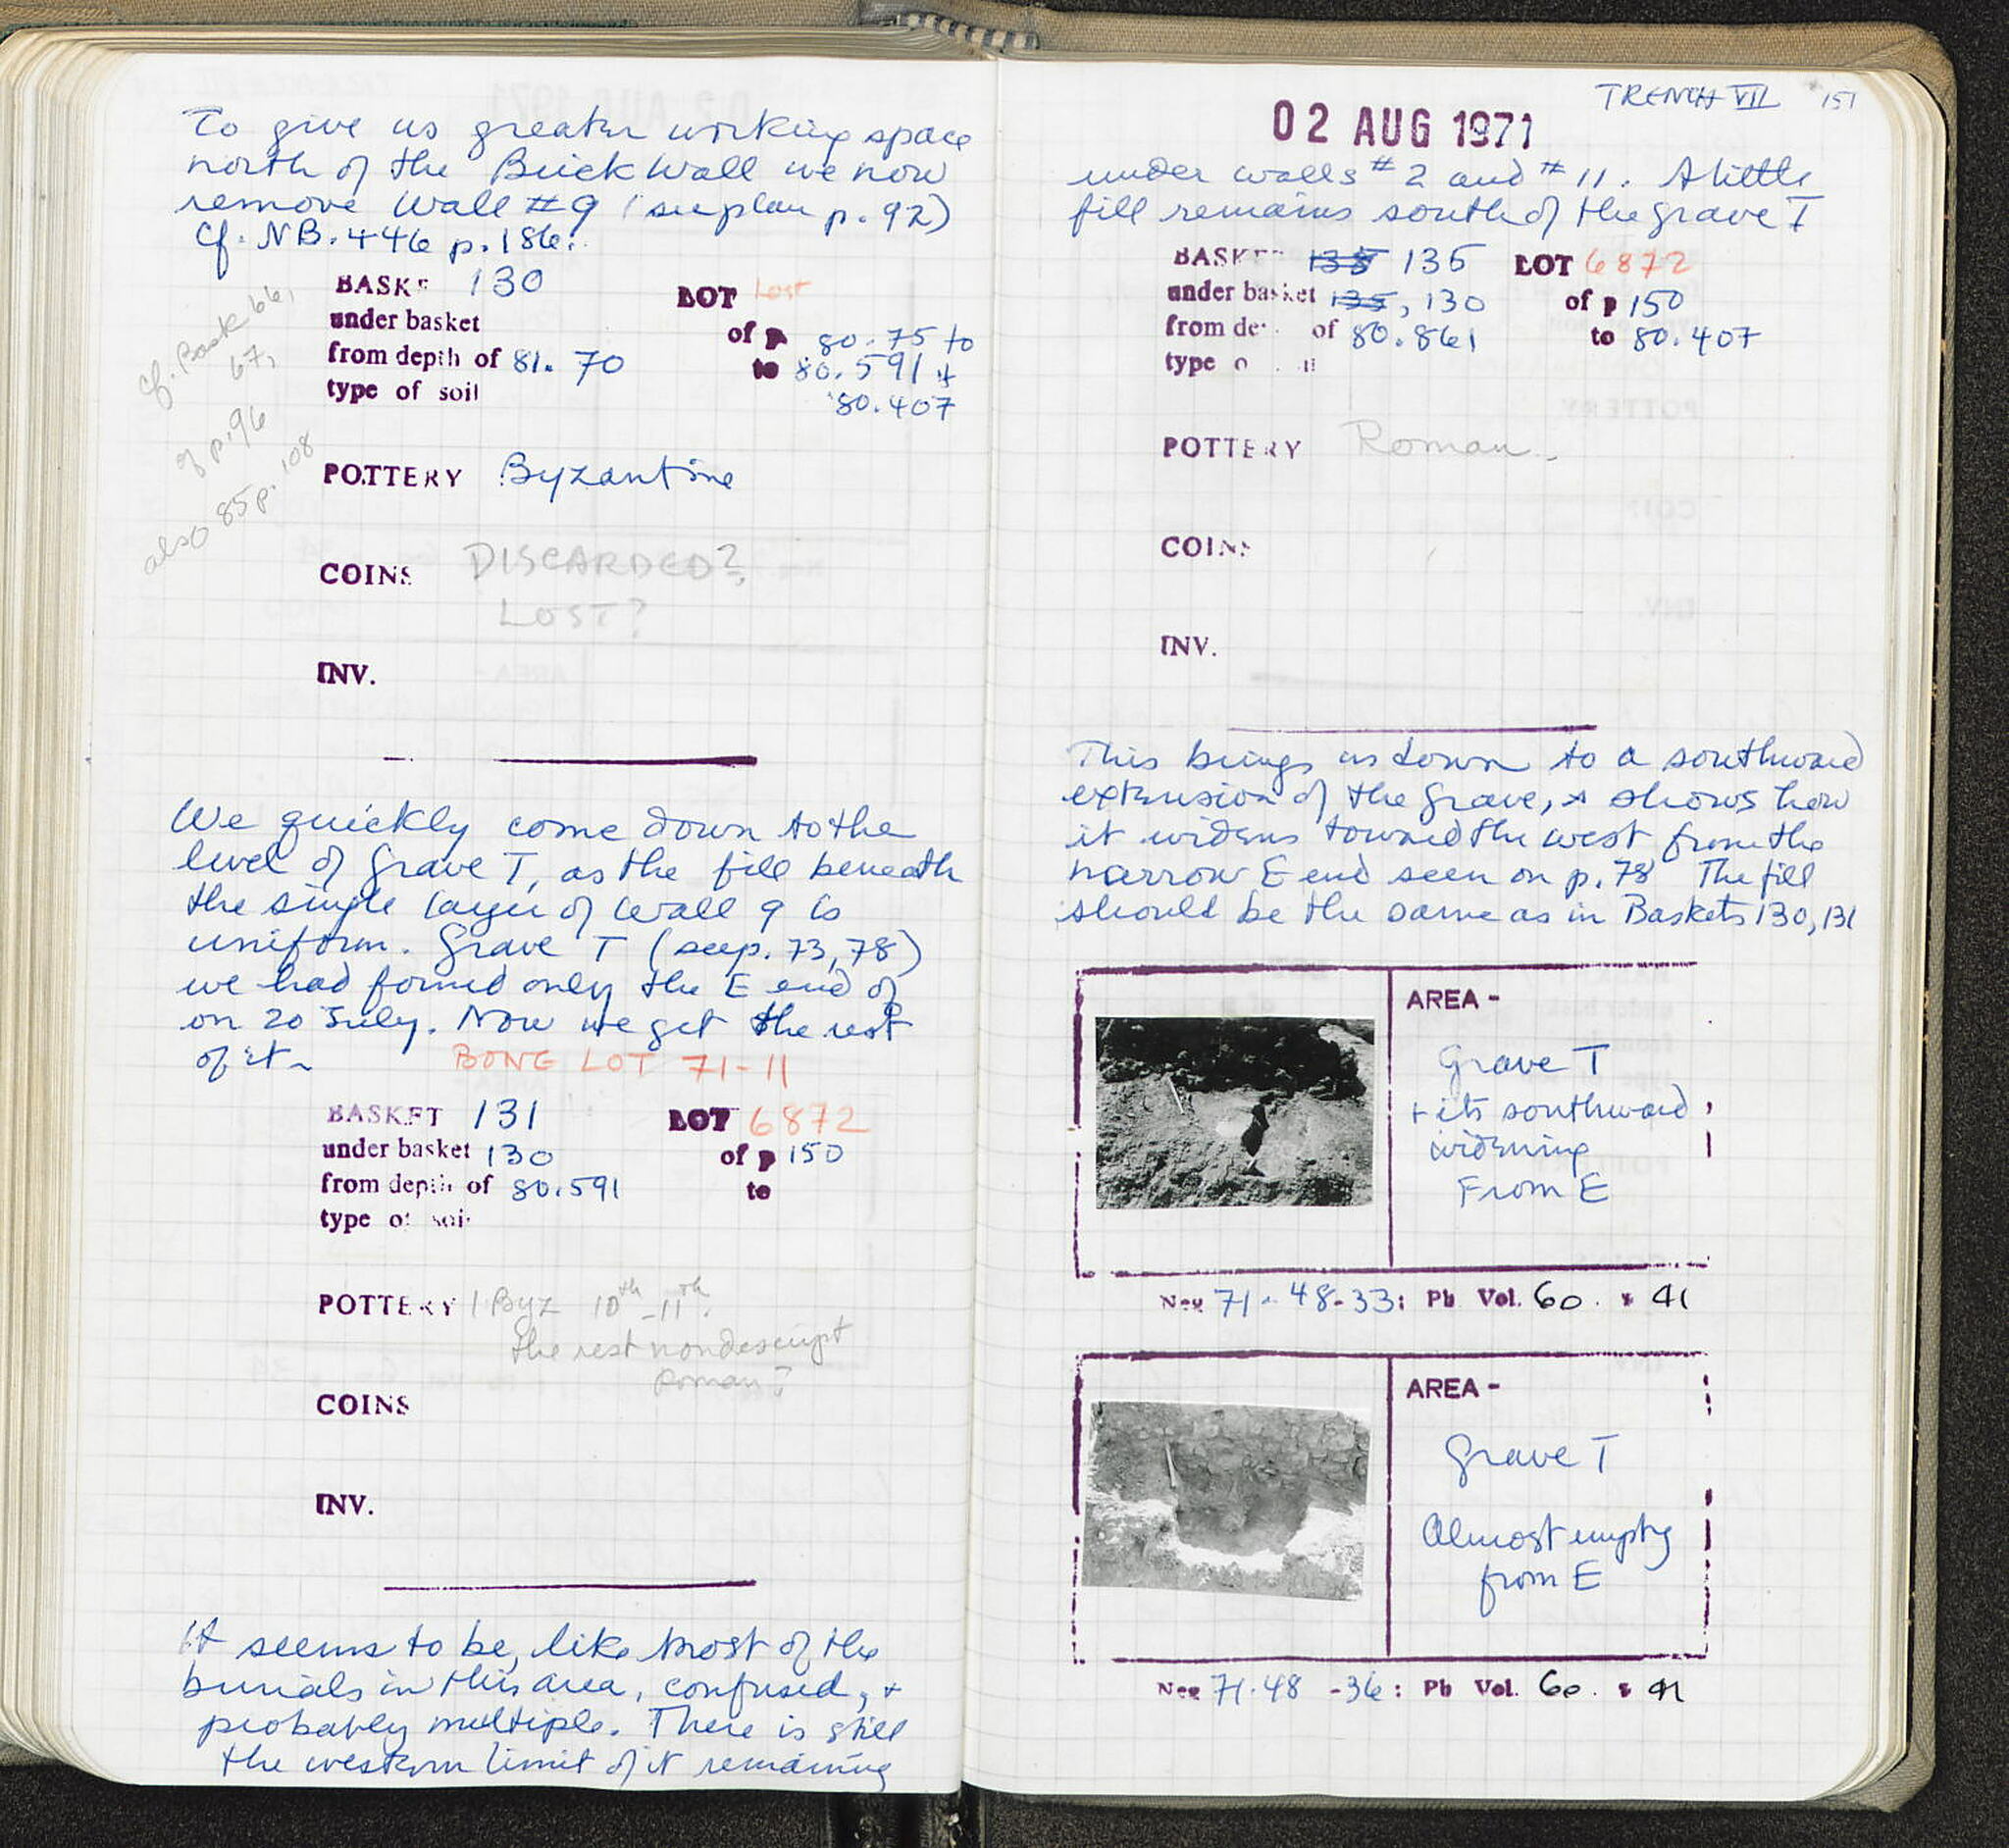 To give us greater working space
north of the Brick Wall we now
remove Wall #9 (see plan p. 92)
Cf. NB. 446 p. 186.
cf. Bask 66,
67,
of p. 96
also 85 p. 108
BASKE 130
LOT Lost
under basket
of p 80.75 to
from depth of 81.70
to 80.591 +
80.407
type of soil
POTTERY Byzantine
COINS DISCARDED?
LOST?
INV.
We quickly come down to the
level of Grave T, as the fill beneath
the single layer of Wall 9 is
uniform. Grave T (see p. 73, 78)
we had found only the E end of
on 20 July. Now we get the rest
of it ~
BONE LOT 71-11
BASKET 131
LOT 6872
under basket 130
of p 150
from depth of 80.591
to
type of soil
POTTERY 1 Byz 10th-11th.
the rest nondescript
Roman?
COINS
INV.
It seems to be, like most of the
burials in this area, confused, +
probably multiple. There is still
the western limit of it remaining
TRENCH VII 151
02 AUG 1971
under walls #2 and #11. A little
fill remains south of the grave T
BASKET 135 136 LOT 6872
under basket 135, 130 of p 150
from de of 80.861 to 80.407
type o il
POTTERY Roman.
COINS
INV.
This brings us down to a southward
extension of the grave, + shows how
it widens toward the west from the
narrow E end seen on p. 78 The fill
should be the same as in Baskets 130, 131
AREA -
Grave T
+ its southward
widening
From E
Neg 71-48-33: Pb Vol. 60. 41
AREA -
Grave T
Almost empty
from E
Neg 71.48 -36: Pb Vol. 60.